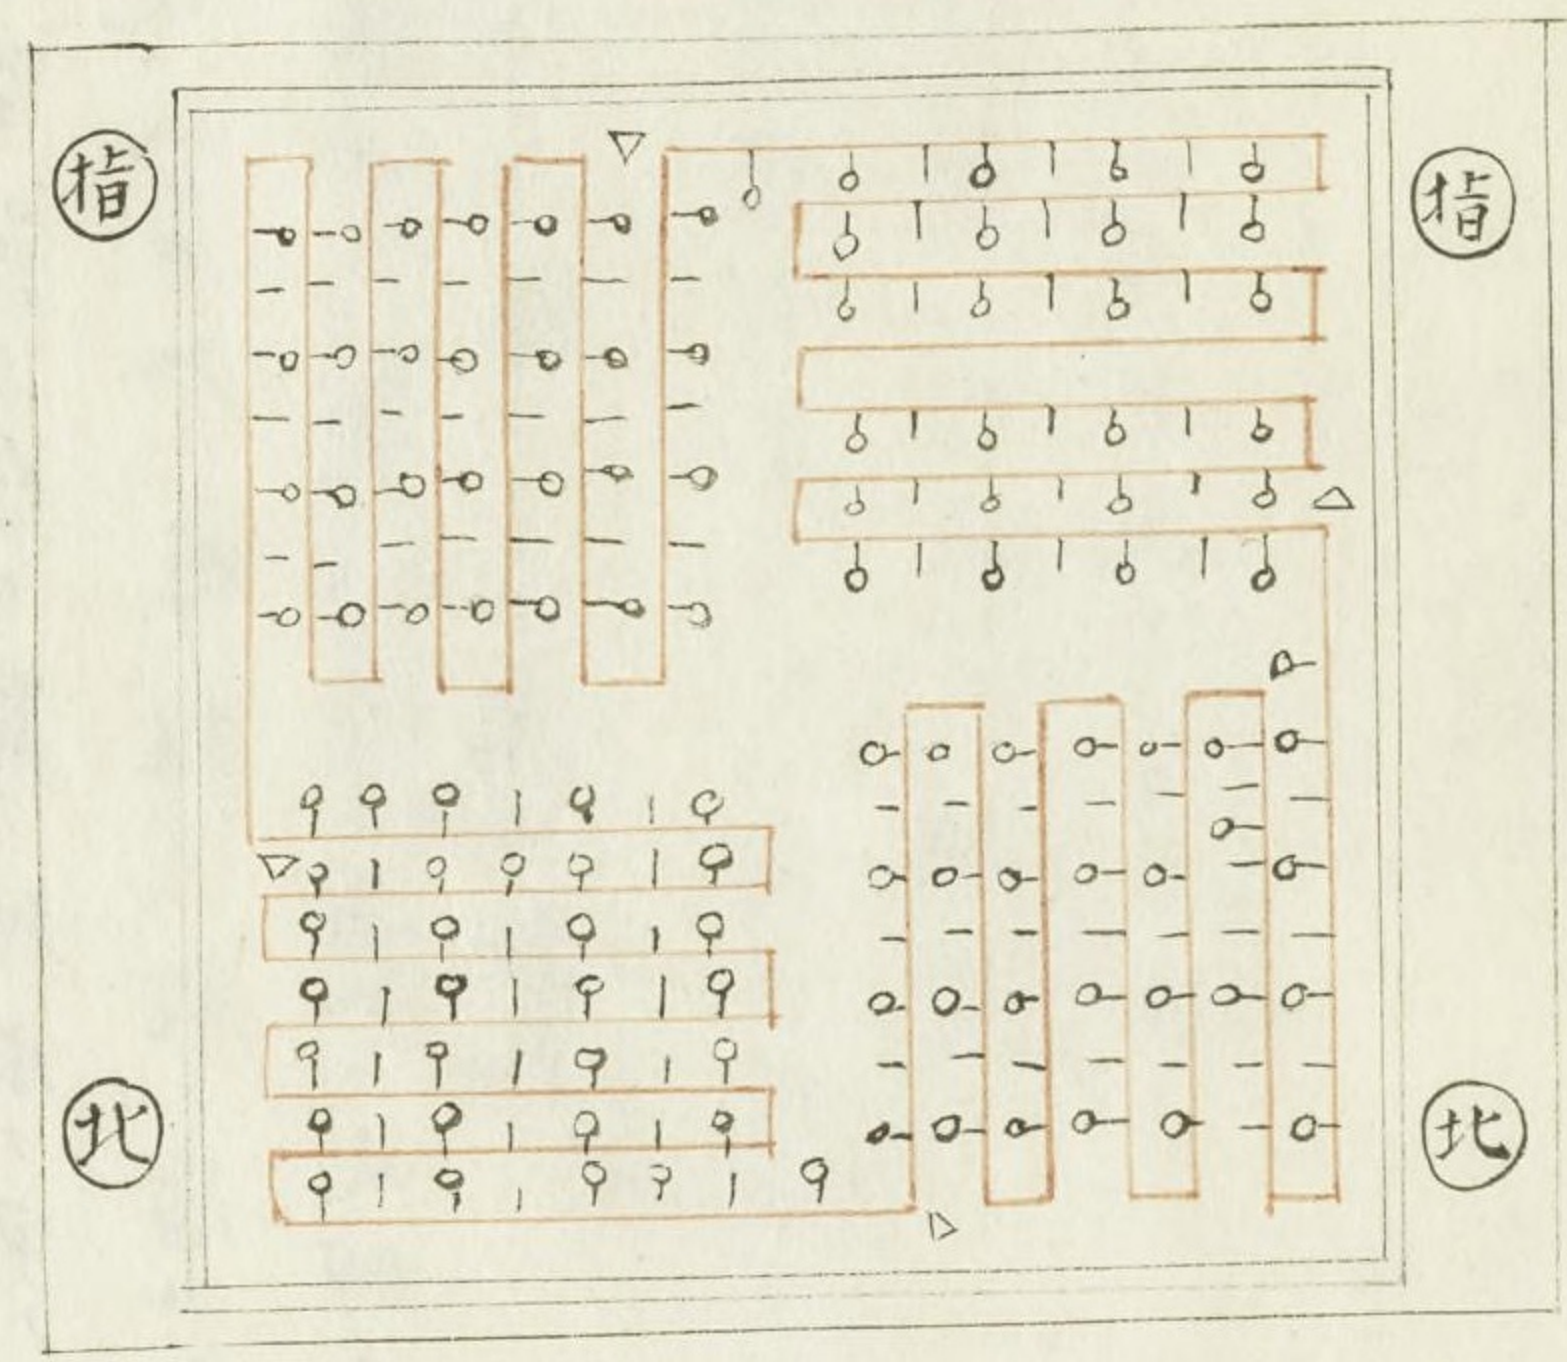 指
指
北
北